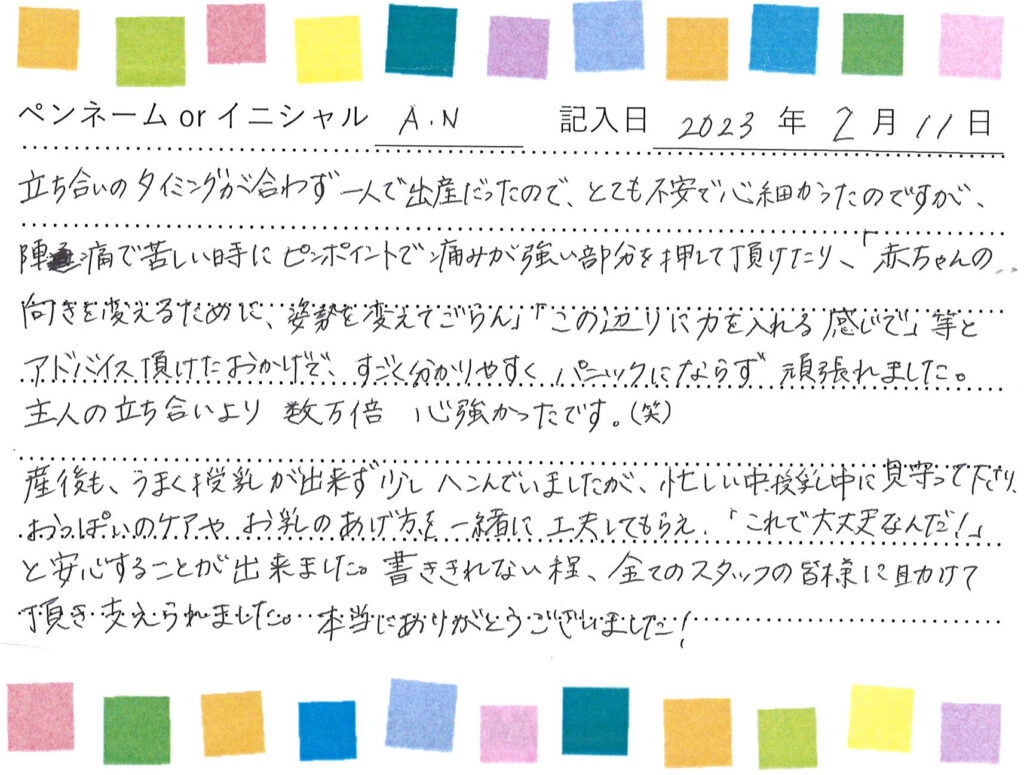 ペンネーム or イニシャル A.N 記入日 2023 年 2 月 11 日
立ち合いのタイミングが合わず一人で出産だったので、とても不安で心細かったのですが、
陣痛で苦しい時にピンポイントで痛みが強い部分を押して頂けたり、「赤ちゃんの
向きを変えるために、姿勢を変えてごらん」「この辺りに力を入れる感じで」等と
アドバイス頂けたおかげで、すごく分かりやすくパニックにならず頑張れました。
主人の立ち合いより数万倍 心強かったです。(笑)
産後も、うまく授乳が出来ず少しヘこんでいましたが、忙しい中授乳中に見守って下さり、
おっぱいのケアや お乳のあげ方を一緒に工夫してもらえ、「これで大丈夫なんだ!」
と安心することが出来ました。書ききれない程、全てのスタッフの皆様に助けて
頂き支えられました。本当にありがとうございました!